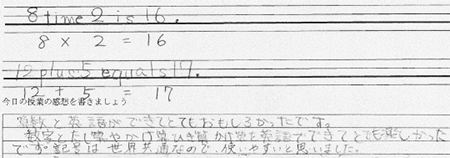 8 time 2 is 16.
8 × 2 = 16
12 plus 5 equals 17.
12 + 5 = 17
今日の授業の感想を書きましょう
算数と英語ができてとてもおもしろかったです。
数字とたし算やかけ算ひき算かけ算を英語でできてとても楽しかった
です。記号は世界共通なので、使いやすいと思いました。